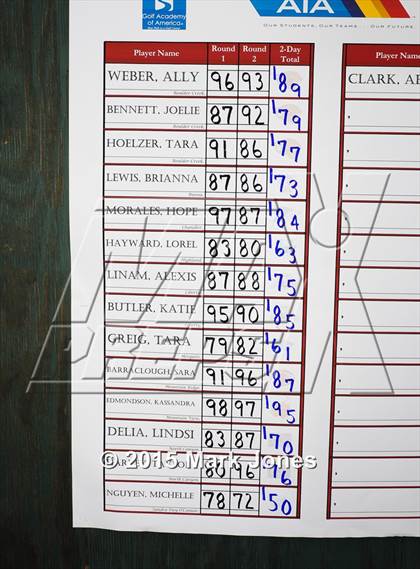 Golf
Academy
of America®
AIA
OUR STUDENTS, OUR TEAMS
Player Name Round 1 Round 2 2-Day Total
WEBER, ALLY 96 93 189
Boulder Creek
BENNETT, JOELIE 87 92 179
Boulder Creek
HOELZER, TARA 91 86 177
Boulder Creek
LEWIS, BRIANNA 87 86 173
MORALES, HOPE 97 87 184
Chandler
HAYWARD, LOREL 83 80 163
Highland
LINAM, ALEXIS 87 88 175
Liberty
BUTLER, KATIE 95 90 185
GREIG, TARA 79 82 161
BARRACLOUGH, SARA 91 96 187
Mountain Ridge
EDMONDSON, KASSANDRA 98 97 195
DELIA, LINDSI 83 87 170
80 76
North Canyon
NGUYEN, MICHELLE 78 72 150
Player Name
CLARK,
MAX PREPS
© 2015 Mark Jones